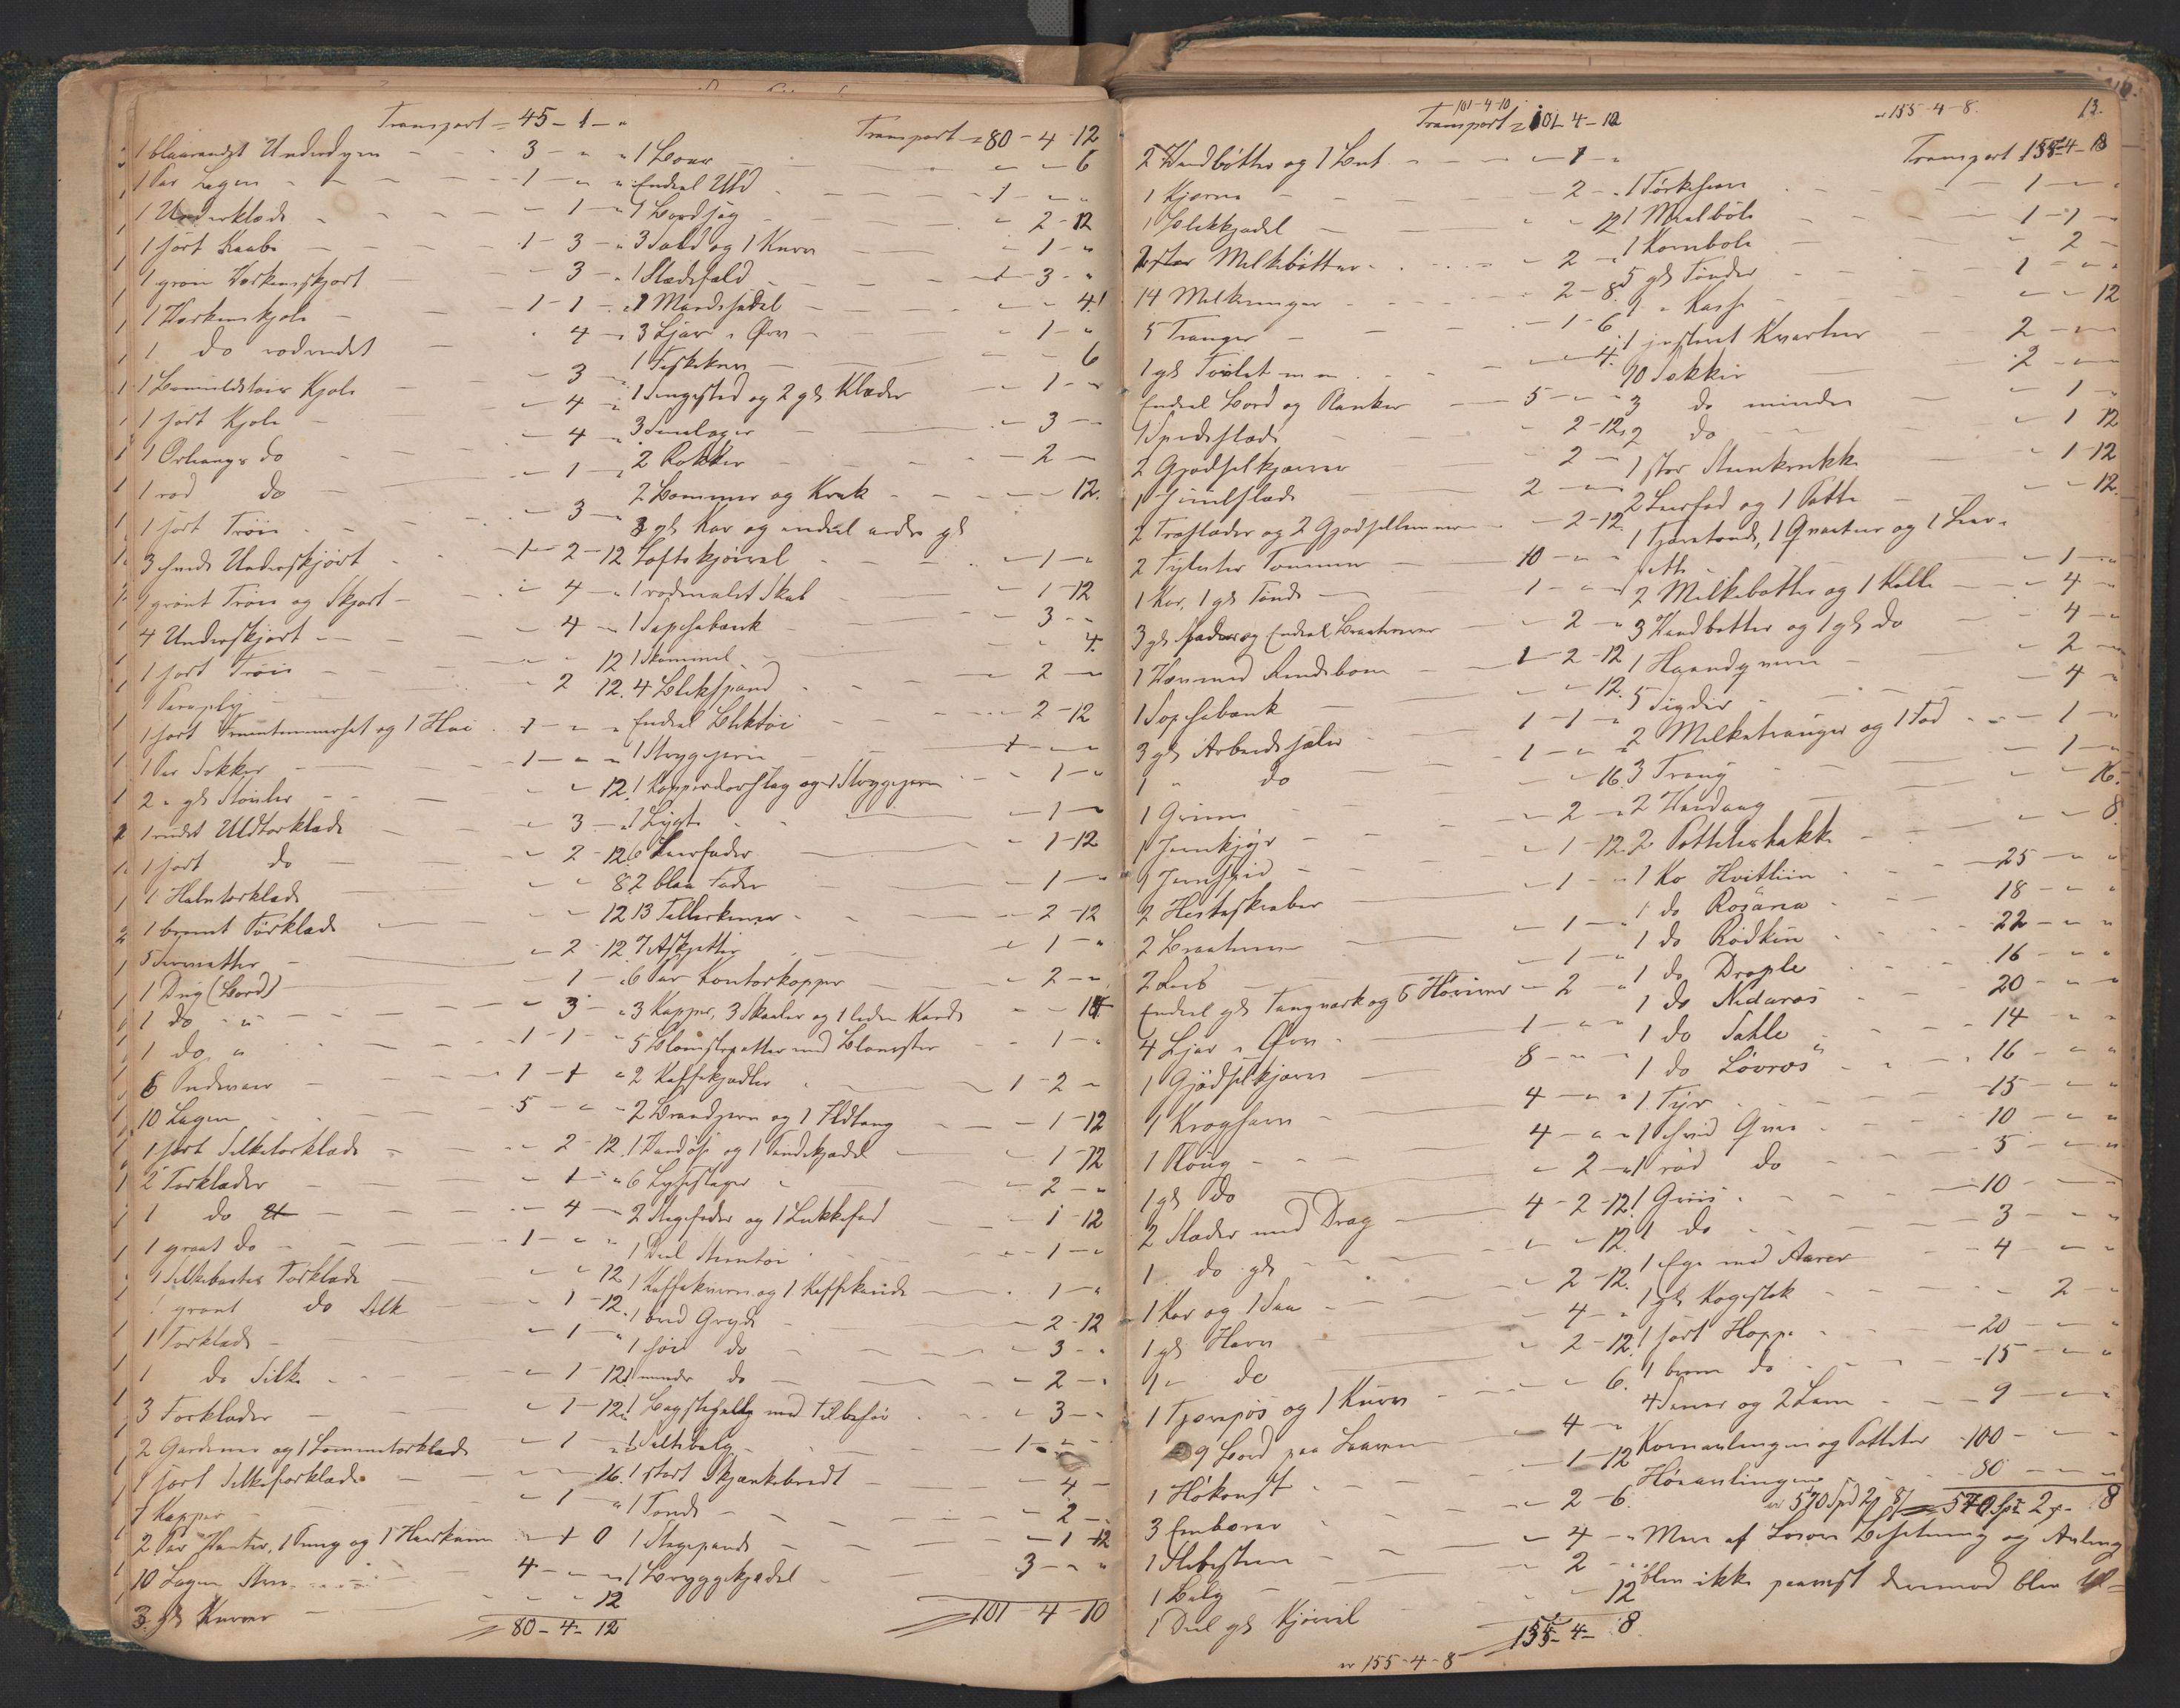 Transport = 45-1-"
1 blaarandet Underdyne - 3 - "
1 Par Lagen - 1 - " "
1 Underklæde - 1 - "
1 sort Kaabe - 1 - 3 - "
1 grøn Værkensskjørt - 3 - "
1 Værkenskjole - 1 - 1 - "
1 do rødrandet - 4 - "
1 Bomuldstøies Kjole - 3 - "
1 sort Kjole - 4 - "
1 Orleangs do - 4 - "
1 rød do - 1 - "
1 sort Trøie - 3 - "
3 hvide Underskjørt - 1 - 2 - 12
1 grønt Trøie og Skjørt - 4 - "
4 Underskjørt - 4 - "
1 sort Trøie - 12
1 Paraply - 2 12
1 sort Fruentimmerhat og 1 Hue - 1 - " "
1 Par Sokker - 1 - " "
2 " gl Støvler - 12
1 rudet Uldtørklæde - 3 - "
1 sort do - 2 - 12
1 Halstørklæde - 8
1 brunt Tørklæde - 12
5 Servietter - 2 - 12
1 Dug (Bord) - 1 - "
1 do " - 3 - "
1 do " - 1 - 1 - "
6 Pudevaar - 1 - 1 - "
10 Lagen - 5 - " "
1 sort Silketørklæde - 2 - 12
2 Tørklæder - 1 - "
1 do - 4 - "
1 graat do - 1 - " "
1 Tørklæde - 12
1 grønt do Silk - 1 - 12
1 Tørklæde - 1 - "
1 do Silke - 1 - 12
3 Forklæder - 1 - 12
2 Gardiner og 1 Lommetørklæde - 1 - "
1 sort Silkeforklæde - 16
7 Kapper - 1 - "
2 Par Vanter, 1 Pung og 1 Haarkam - 1 0
10 Lagen - 4 - " "
3 gl Kurver - 12
80 - 4 - 12
Transport = 80 - 4 - 12
1 - 6
Endeel Uld - 1 - " "
1 Bordsag - 2 - 12
3 Sold og 1 Kurv - 1 - "
1 Slædefæld - 1 - 3 - "
1 Mandssadel - 4
3 Ljaar " Orv - 1 - "
1 Feskekurv - 6
1 Sengested og 2 gl Klæder - 1 - "
3 Senelager - 3 -
2 Rokker - 2 -
2 Bommer og Krak - 12
8 gl Kar og endeel andre gl
Loftskjørrel - 1 - "
1 rødmalet Skab - 1 - 12
1 Sæpebænk - 3 - "
1 Skammel - 4
4 Blikspand - 2 -
Endeel Bliktøi - 2 - 12
1 Strygejern - 1 - "
1 Kopperdørslag og 1 Strygejern - 1 - "
1 Lygte - 1 -
6 Leerfade - 1 - 12
2 blaa Fade - 1 - "
13 Tallerkener - 2 - 12
7 Asjetter - 1 - "
6 Par Kontorkopper - 2 - "
3 Kopper, 3 Skaaler og 1 liden Kande - 14
5 Blomsterpotter med Blomster - 1 - "
2 Kaffekjedler - 1 - 2 -
2 Brandjern og 1 Ildtang - 1 - 12
1 Vandøse og 1 Pandekjedel - 1 - 12
6 Lysestager - 2 - "
2 Stegefader og 1 Lukkefad - 1 - 12
1 Deel Steentøi - 1 - "
1 Kaffekværn og 1 Kaffekande - 1 - "
1 bred Gryde - 2 - 12
1 høi do - 3 - "
1 mindre do - 2 - "
1 Bagsthelle med Tilbehør - 3 - "
1 Saltebalje - 1 - "
1 stort Skjænkebredt - 4 -
1 Tønde - 2 -
1 Stegepande - 1 12
1 Bryggekjedel - 3 - " "
101 - 4 - 10
101-4-10
Transport = 101 4 - 12
2 Vandbøtter og 1 - 1 - "
1 Kjerne - 2 - "
1 Blikkjedel - 12
2 store Melkebøtter - 2 - "
14 Melkeringer - 2 - 8
5 Trauger - 1 - 6
1 gl Toilet m m - 4
Endeel Bord og Planker - 5 - " "
1 Spidsslæde - 2 - 12
2 Gjødselkjærrer - 2 -
1 - 2 - "
2 Træslæder og 2 Gjødsellemmer - 2 - 12
2 Tylvter Tømmer - 10 - " "
1 Kar, 1 gl Tønde - 1 - " "
3 gl og Endeel - 2 - "
1 Væv med Rendebom - 1 - 2 - 12
1 Sopebænk - 12
3 gl Arbeidsseler - 1 - 1 - "
1 " do - 1 - " "
1 Grime - 16
1 - 2 - "
1 - 1 - 12
2 Hesteskraber - 1 - "
2
2 - 1 - "
Endeel gl Tangværk og 6 Høriver - 2 "
4 Ljaar " Orv - 1 - " "
1 Gjødselkjærre - 8 - " "
1 Kroghavn - 4 - " "
1 Ploug - 4 - " "
1 gl do - 2 - "
2 Slæder med Drag - 4 - 2 - 12
1 do gl - 12
1 Kar og 1 Saa - 2 - 12
1 gl Harv - 4 - "
1 " do - 2 - 12
1 Tjærepøs og 1 Kurv - 6
9 Bord paa Laaven - 4 - "
1 - 1 - 12
3 Embarer - 2 - 6
1 Slibesteen - 4 - "
1 Belg - 2 - "
1 Deel gl Kjørrel - 12
155 - 4 - 8
er 155-4-8
" 155-4-8.
13.
Transport 155-4-8
1 - 1 - "
1 Meelbøle - 1 - 1 -
1 Kornbøle - 2 -
5 gl Tønder - 1 - "
9 " Kasse - 12
1 justeret Kvarter - 2 - "
10 Sækker - 2 - "
3 do mindre - 1 -
2 do - 1 12
1 stor Steenkrukke - 1 - 12
2 Leerfad og 1 Potte - 12
1 Tjæretønde, 1 Qvarter og 1 Leer-
potte - 1 - "
2 Melkebøtter og 1 Kolle - 4 -
3 Vandbøtter og 1 gl do - 4 -
1 Haandqværn - 2 -
5 Sigder - 4 -
2 Melketrauger og 1 Fad - 1 -
3 Traug - 1 -
2 - 16
2 Pottetershakke - 8
1 Ko Hvitliin - 25 - " "
1 do Rosároa - 18 - " "
1 do Rødkin - 22 - " "
1 do Drople - 16 - " "
1 do Nidaros - 20 - " "
1 do Sahle - 14 - " "
1 do Løvros - 16 - " "
1 Tyr - 15 - " "
1 hvid Qvie - 10 - " "
1 rød do - 5 - " "
1 Griis - 10 - " "
1 do - 3 - " "
1 Ege med Aarer - 4 - "
1 gl Kogestok - 2 -
1 sort Hoppe - 20 - " "
1 brun do - 15 - " "
4 Souer og 2 Lam - 9 - "
Kornavlingen og Potteter - 100 - " "
Høravlingen - 80 - " "
er 570 Spd 2 8 570 Spd 2 - 8
Mere af Løsøre Besetning og Avling
blev ikke paavist derimod blev